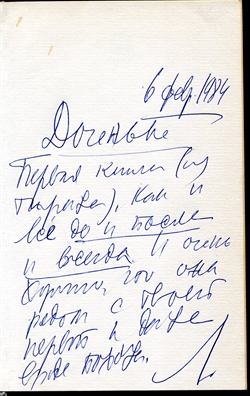 6 фев. 1984
Доченьке
Первая книга (из
тиража), как и
всё до и после
и всегда. И очень
хорошо, что она
рядом с твоей
первой и даже